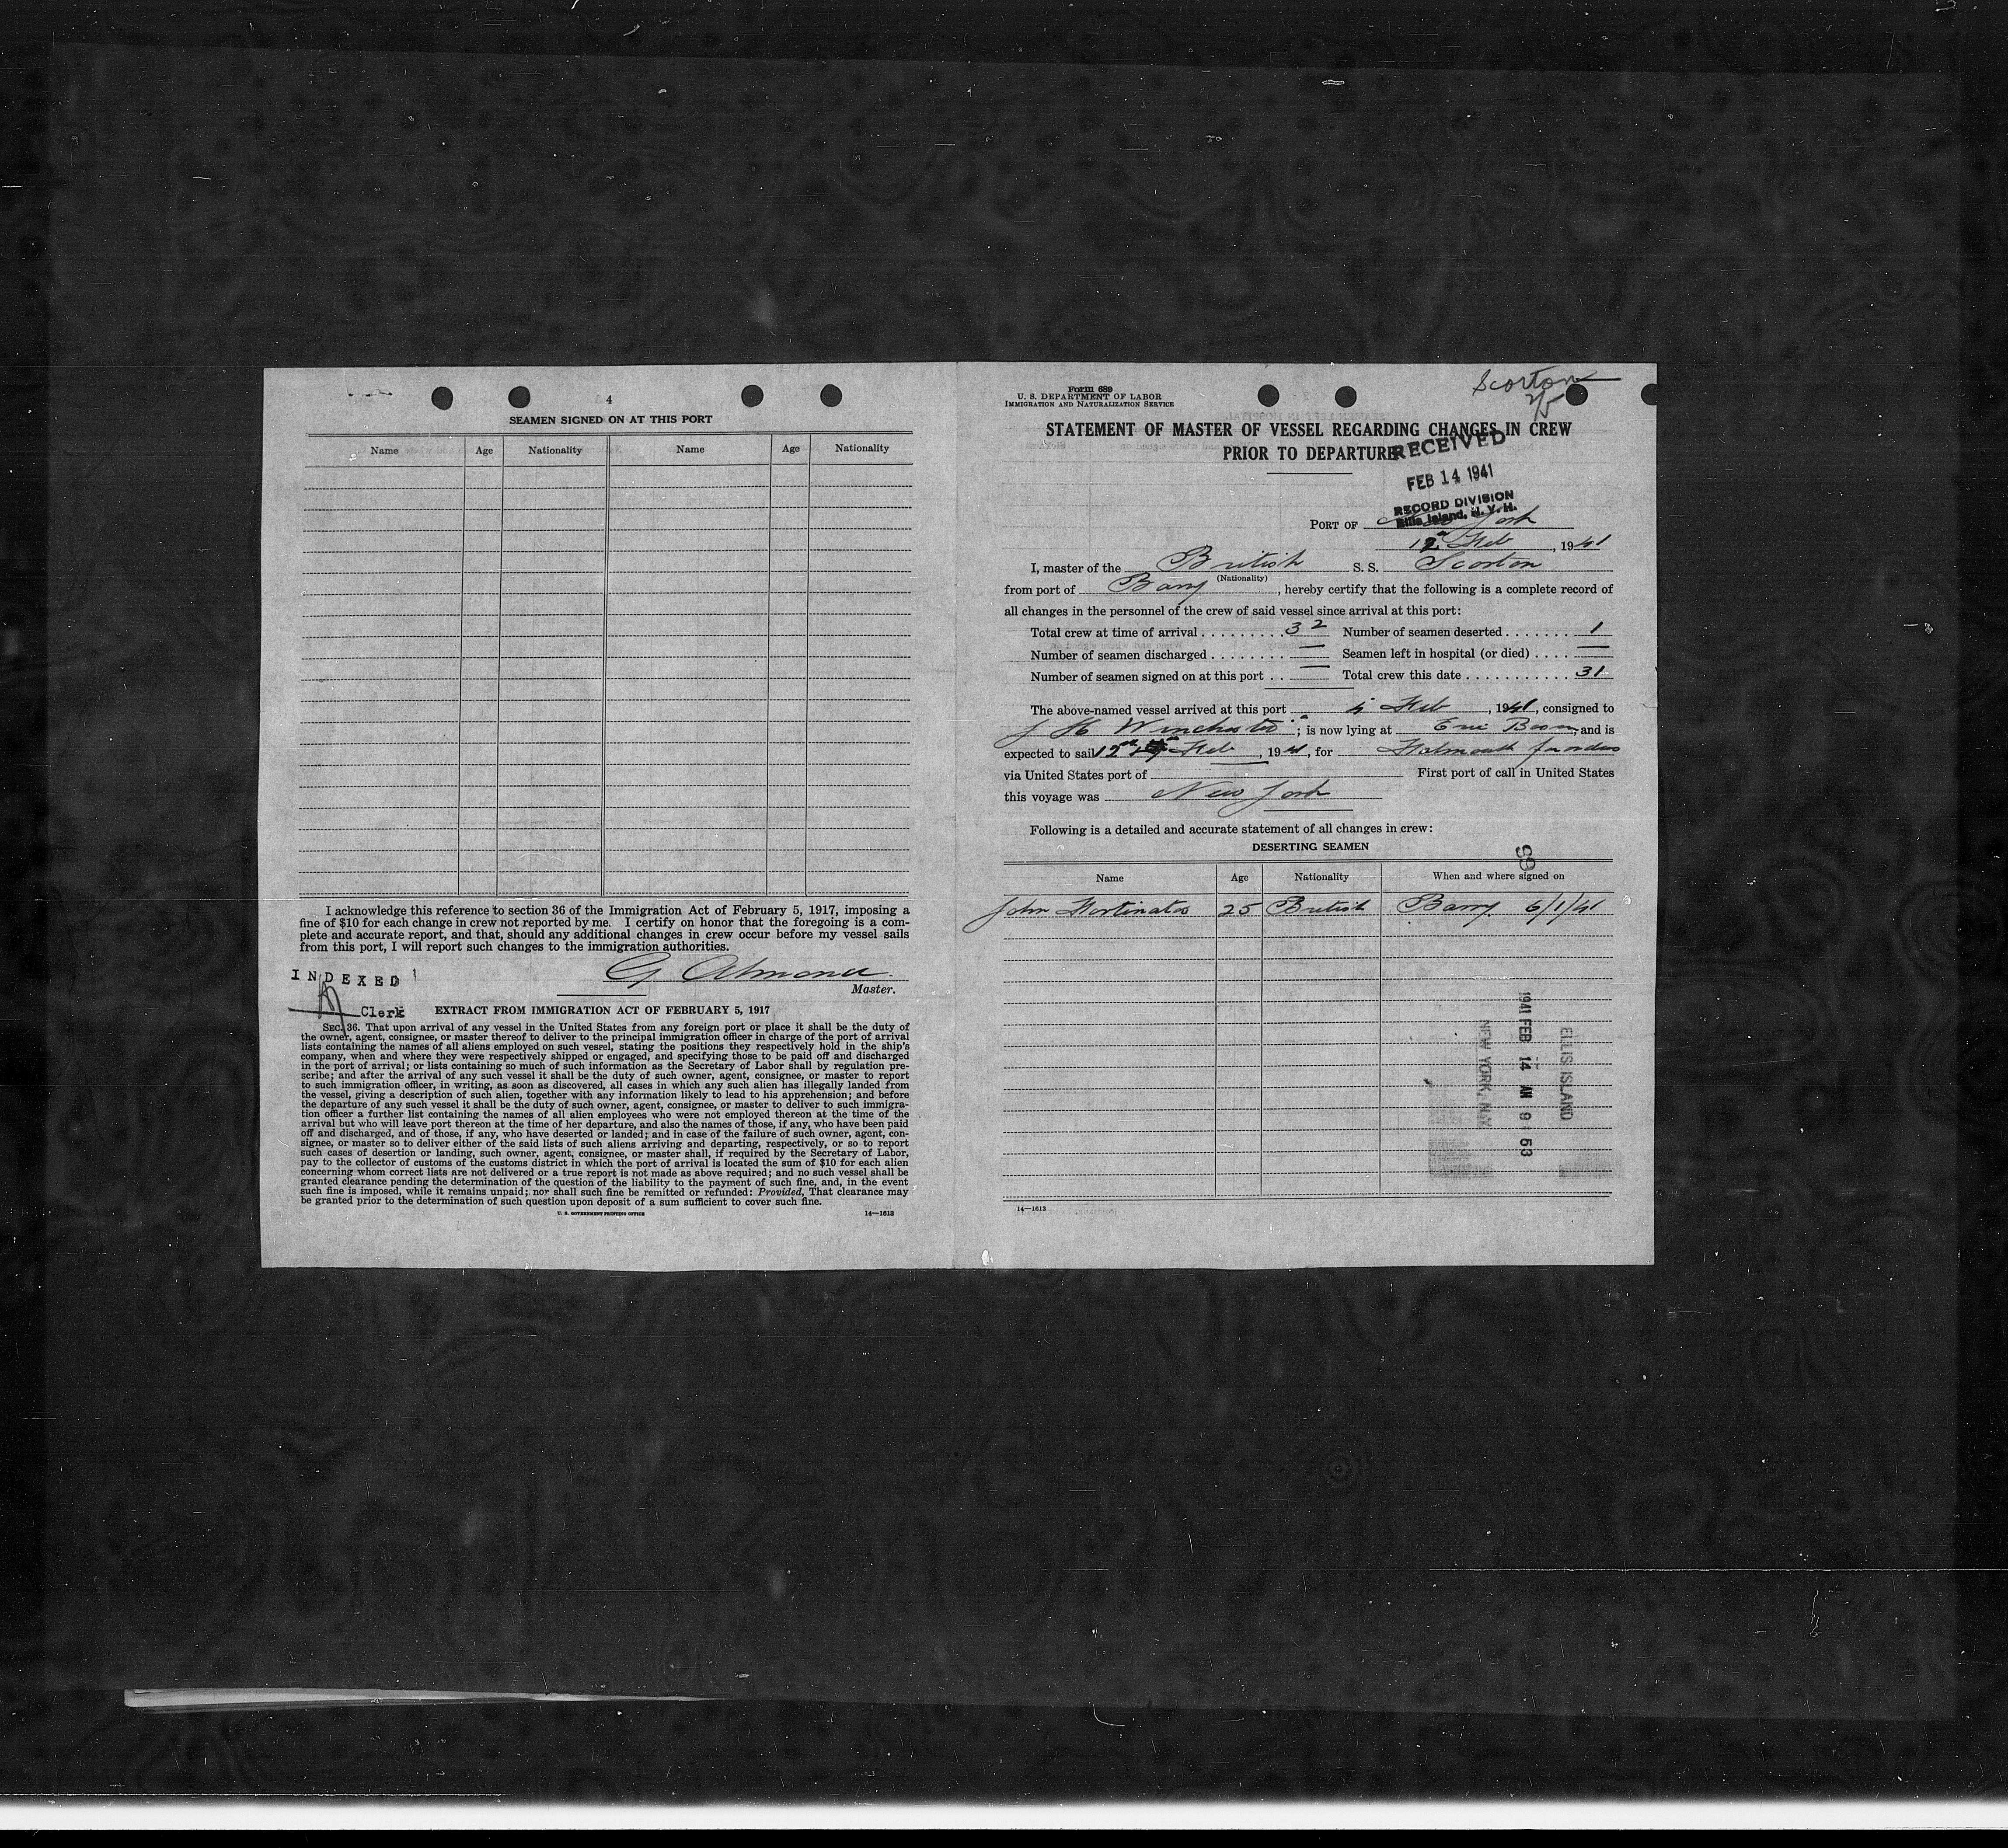 4
SEAMEN SIGNED ON AT THIS PORT
Name Age Nationality Name Age Nationality
I acknowledge this reference to section 36 of the Immigration Act of February 5, 1917, imposing a
fine of $10 for each change in crew not reported by me. I certify on honor that the foregoing is a com-
plete and accurate report, and that, should any additional changes in crew occur before my vessel sails
from this port, I will report such changes to the immigration authorities.
G Almond
Master.
INDEXED
Clerk
EXTRACT FROM IMMIGRATION ACT OF FEBRUARY 5, 1917
SEC. 36. That upon arrival of any vessel in the United States from any foreign port or place it shall be the duty of
the owner, agent, consignee, or master thereof to deliver to the principal immigration officer in charge of the port of arrival
lists containing the names of all aliens employed on such vessel, stating the positions they respectively hold in the ship's
company, when and where they were respectively shipped or engaged, and specifying those to be paid off and discharged
in the port of arrival; or lists containing so much of such information as the Secretary of Labor shall by regulation pre-
scribe; and after the arrival of any such vessel it shall be the duty of such owner, agent, consignee, or master to report
to such immigration officer, in writing, as soon as discovered, all cases in which any such alien has illegally landed from
the vessel, giving a description of such alien, together with any information likely to lead to his apprehension; and before
the departure of any such vessel it shall be the duty of such owner, agent, consignee, or master to deliver to such immigra-
tion officer a further list containing the names of all alien employees who were not employed thereon at the time of the
arrival but who will leave port thereon at the time of her departure, and also the names of those, if any, who have been paid
off and discharged, and of those, if any, who have deserted or landed; and in case of the failure of such owner, agent, con-
signee, or master so to deliver either of the said lists of such aliens arriving and departing, respectively, or so to report
such cases of desertion or landing, such owner, agent, consignee, or master shall, if required by the Secretary of Labor,
pay to the collector of customs of the customs district in which the port of arrival is located the sum of $10 for each alien
concerning whom correct lists are not delivered or a true report is not made as above required; and no such vessel shall be
granted clearance pending the determination of the question of the liability to the payment of such fine, and, in the event
such fine is imposed, while it remains unpaid; nor shall such fine be remitted or refunded: Provided, That clearance may
be granted prior to the determination of such question upon deposit of a sum sufficient to cover such fine.
U. S. GOVERNMENT PRINTING OFFICE 14—1613
Form 689
U. S. DEPARTMENT OF LABOR
IMMIGRATION AND NATURALIZATION SERVICE
Scorton
2/5
STATEMENT OF MASTER OF VESSEL REGARDING CHANGES IN CREW
PRIOR TO DEPARTURE
RECEIVED
FEB 14 1941
RECORD DIVISION
Ellis Island, N. Y. H.
PORT OF New York
12 Feb, 1941
I, master of the British S. S. Scorton
(Nationality)
from port of Barry, hereby certify that the following is a complete record of
all changes in the personnel of the crew of said vessel since arrival at this port:
Total crew at time of arrival . . . . . . . . . 32 Number of seamen deserted . . . . . . . 1
Number of seamen discharged . . . . . . . . — Seamen left in hospital (or died) . . . . —
Number of seamen signed on at this port . . — Total crew this date . . . . . . . . . . . 31
The above-named vessel arrived at this port Feb, 1941, consigned to
J H Winchester; is now lying at Erie Basin, and is
expected to sail 12 Feb, 1941, for Falmouth for orders
via United States port of First port of call in United States
this voyage was New York
Following is a detailed and accurate statement of all changes in crew:
DESERTING SEAMEN
99
Name Age Nationality When and where signed on
John 25 British Barry 6/1/41
ELLIS ISLAND
1941 FEB 14 AM 9 53
NEW YORK, N.Y.
14—1613